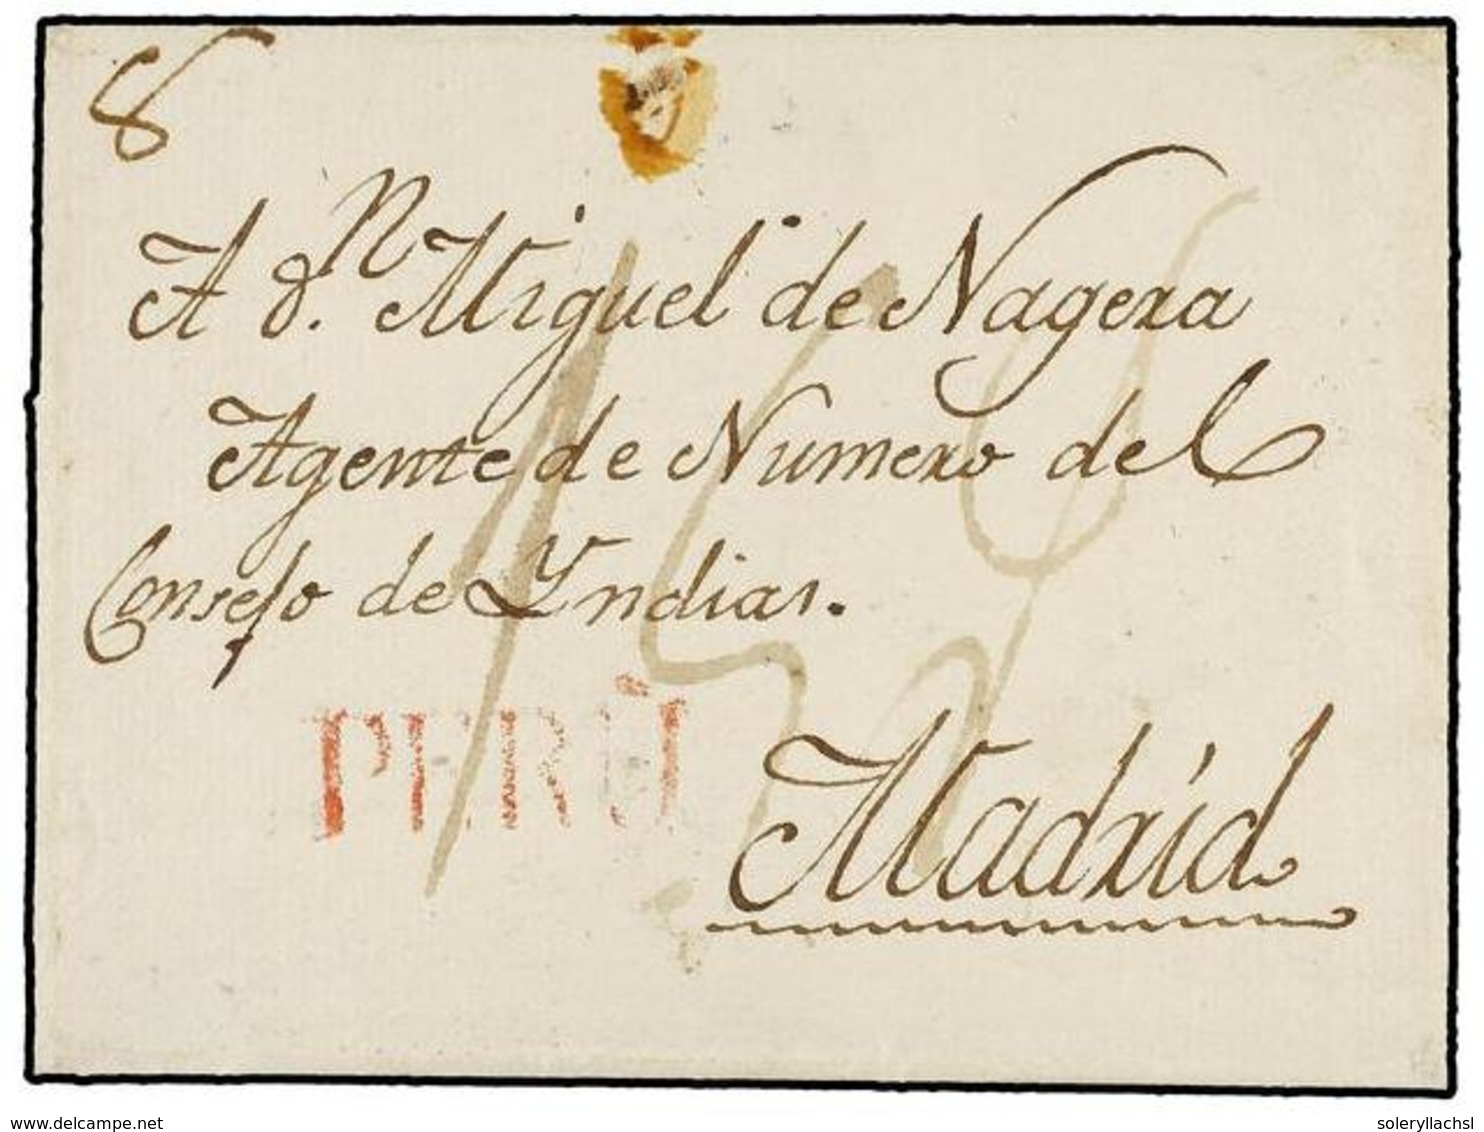 8
A d.n Miguel de Nagera
Agente de Numero del
Consejo de Yndias.
PERÚ
Madrid
www.delcampe.net
soleryllachsl